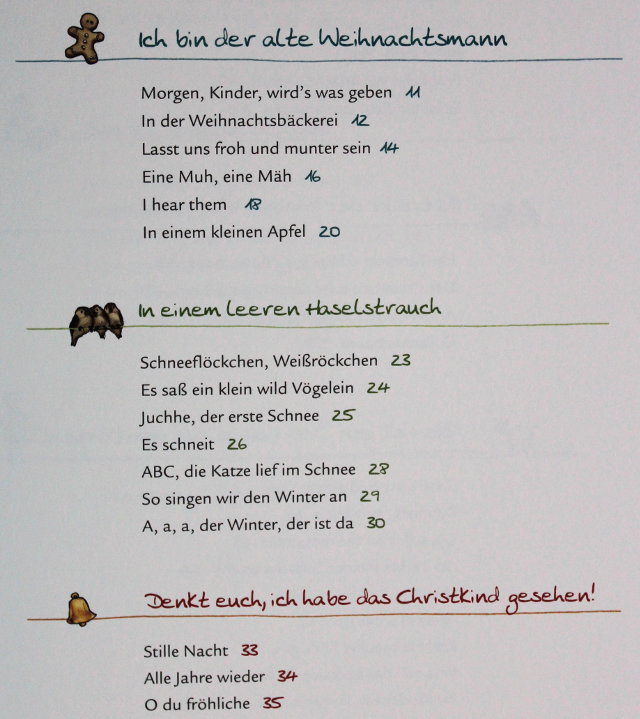 Ich bin der alte Weihnachtsmann
Morgen, Kinder, wird's was geben 11
In der Weihnachtsbäckerei 12
Lasst uns froh und munter sein 14
Eine Muh, eine Mäh 16
I hear them 18
In einem kleinen Apfel 20
In einem leeren Haselstrauch
Schneeflöckchen, Weißröckchen 23
Es saß ein klein wild Vögelein 24
Juchhe, der erste Schnee 25
Es schneit 26
ABC, die Katze lief im Schnee 28
So singen wir den Winter an 29
A, a, a, der Winter, der ist da 30
Denkt euch, ich habe das Christkind gesehen!
Stille Nacht 33
Alle Jahre wieder 34
O du fröhliche 35